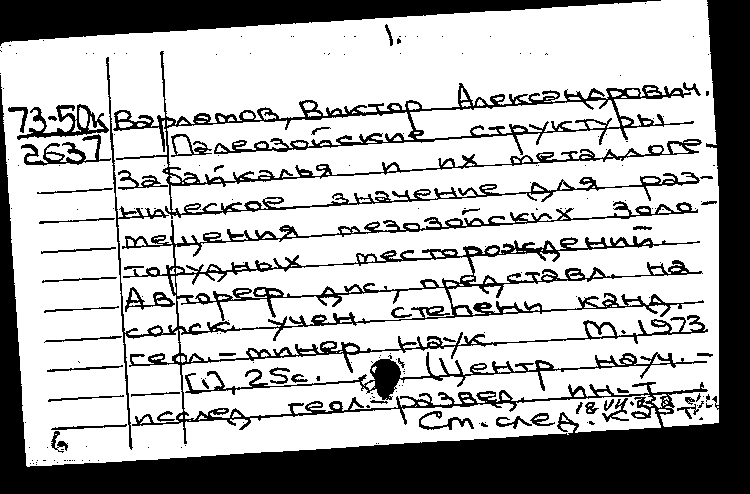 1.
73-50к Варламов, Виктор Александрович.
2637 Палеозойские структуры
Забайкалья и их металлоге-
ническое значение для раз-
мещения мезозойских золо-
торудных месторождений.
Автореф. дис., представл. на
соиск. учен. степени канд.
геол.-минер. наук. М., 1973
[1], 25с. (Центр. науч.-
исслед. геол.-развед. ин-т
См. след. карт.
6